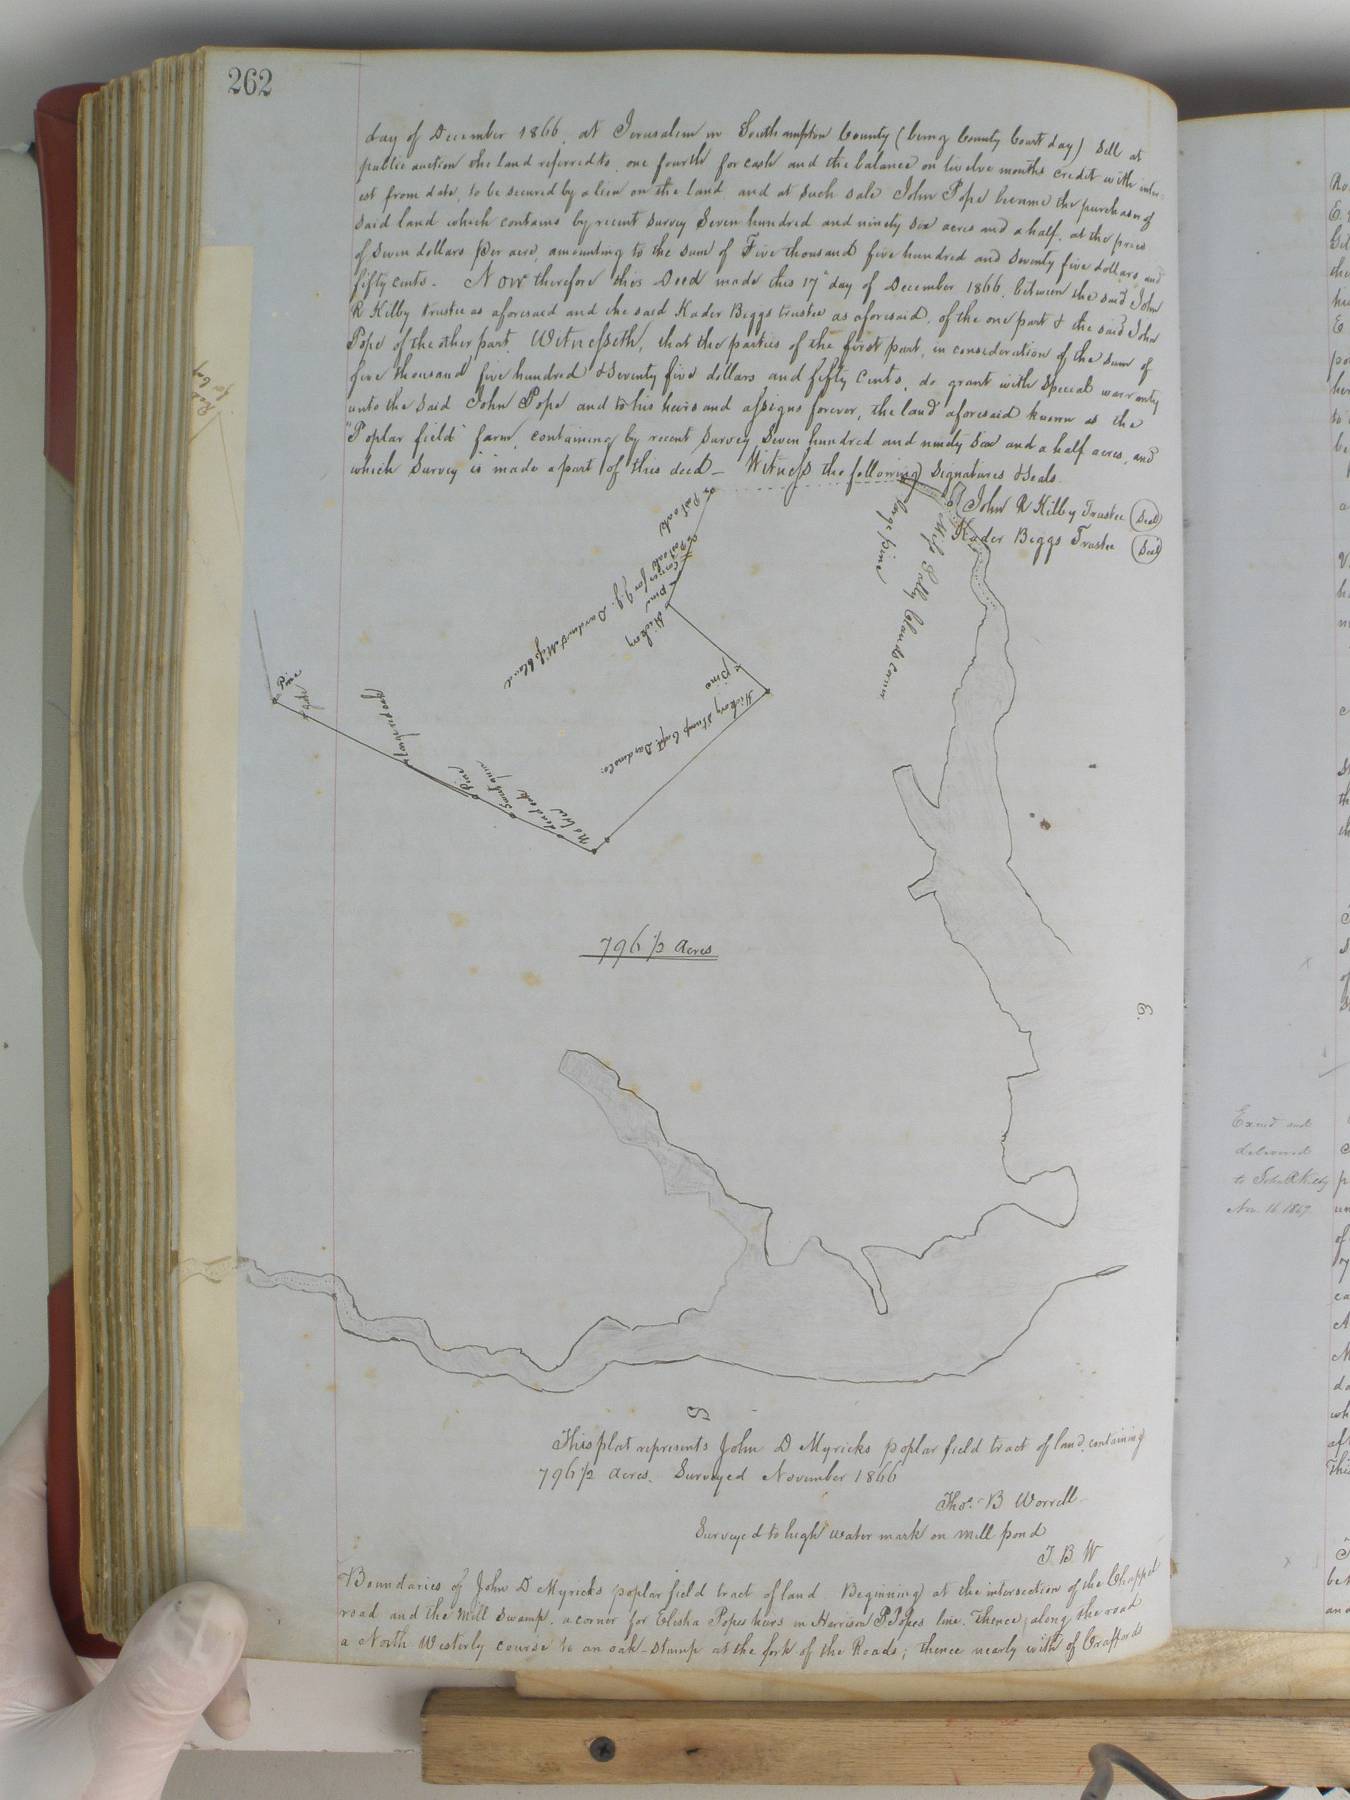 262
day of December 1866, at Jerusalem in Southampton County (being County Court day) sell at
public auction the land referred to, one fourth for cash and the balance on twelve months credit with inter-
est from date, to be secured by a lien on the land and at such sale John Pope became the purchaser of
said land which contains by recent survey Seven hundred and ninety six acres and a half, at the price
of Seven dollars per acre, amounting to the sum of Five thousand five hundred and seventy five dollars and
fifty cents. Now therefore this Deed made this 17th day of December 1866, between the said John
R Kilby trustee as aforesaid and the said Kader Biggs trustee as aforesaid, of the one part & the said John
Pope of the other part, Witnesseth, that the parties of the first part, in consideration of the sum of
five thousand five hundred & seventy five dollars and fifty cents, do grant with special warranty
unto the said John Pope and to his heirs and assigns forever, the land aforesaid known as the
"Poplar field" farm, containing by recent survey Seven hundred and ninety six and a half acres, and
which survey is made a part of this deed - Witness the following signatures & seals.
John R Kilby Trustee (Seal)
Kader Biggs Trustee (Seal)
large pine
Miss Sally Clauds corner
Post oak
Post oak
Corner for J. J. Darden & Miss Claud
Pine
Hickory
Pine
Hickory Stump Capt. Dardens Co.
Pine
large red oak
Pine
Sweet gum
dead oak
796 1/2 acres
E.
S
This plat represents John D Myricks poplar field tract of land containing
796 1/2 acres. Surveyed November 1866
Thos. B Worrell
Surveyed to high water mark on mill pond
T. B. W
Boundaries of John D Myricks poplar field tract of land Beginning at the intersection of the Chappel
road and the Mill Swamp, a corner for Elisha Popes heirs in Harrison P Popes line. Thence along the road
a North Westerly course to an oak-stump at the fork of the Roads; thence nearly with of Craffords
Exmd and
delivered
to John R Kilby
Nov. 16 1867